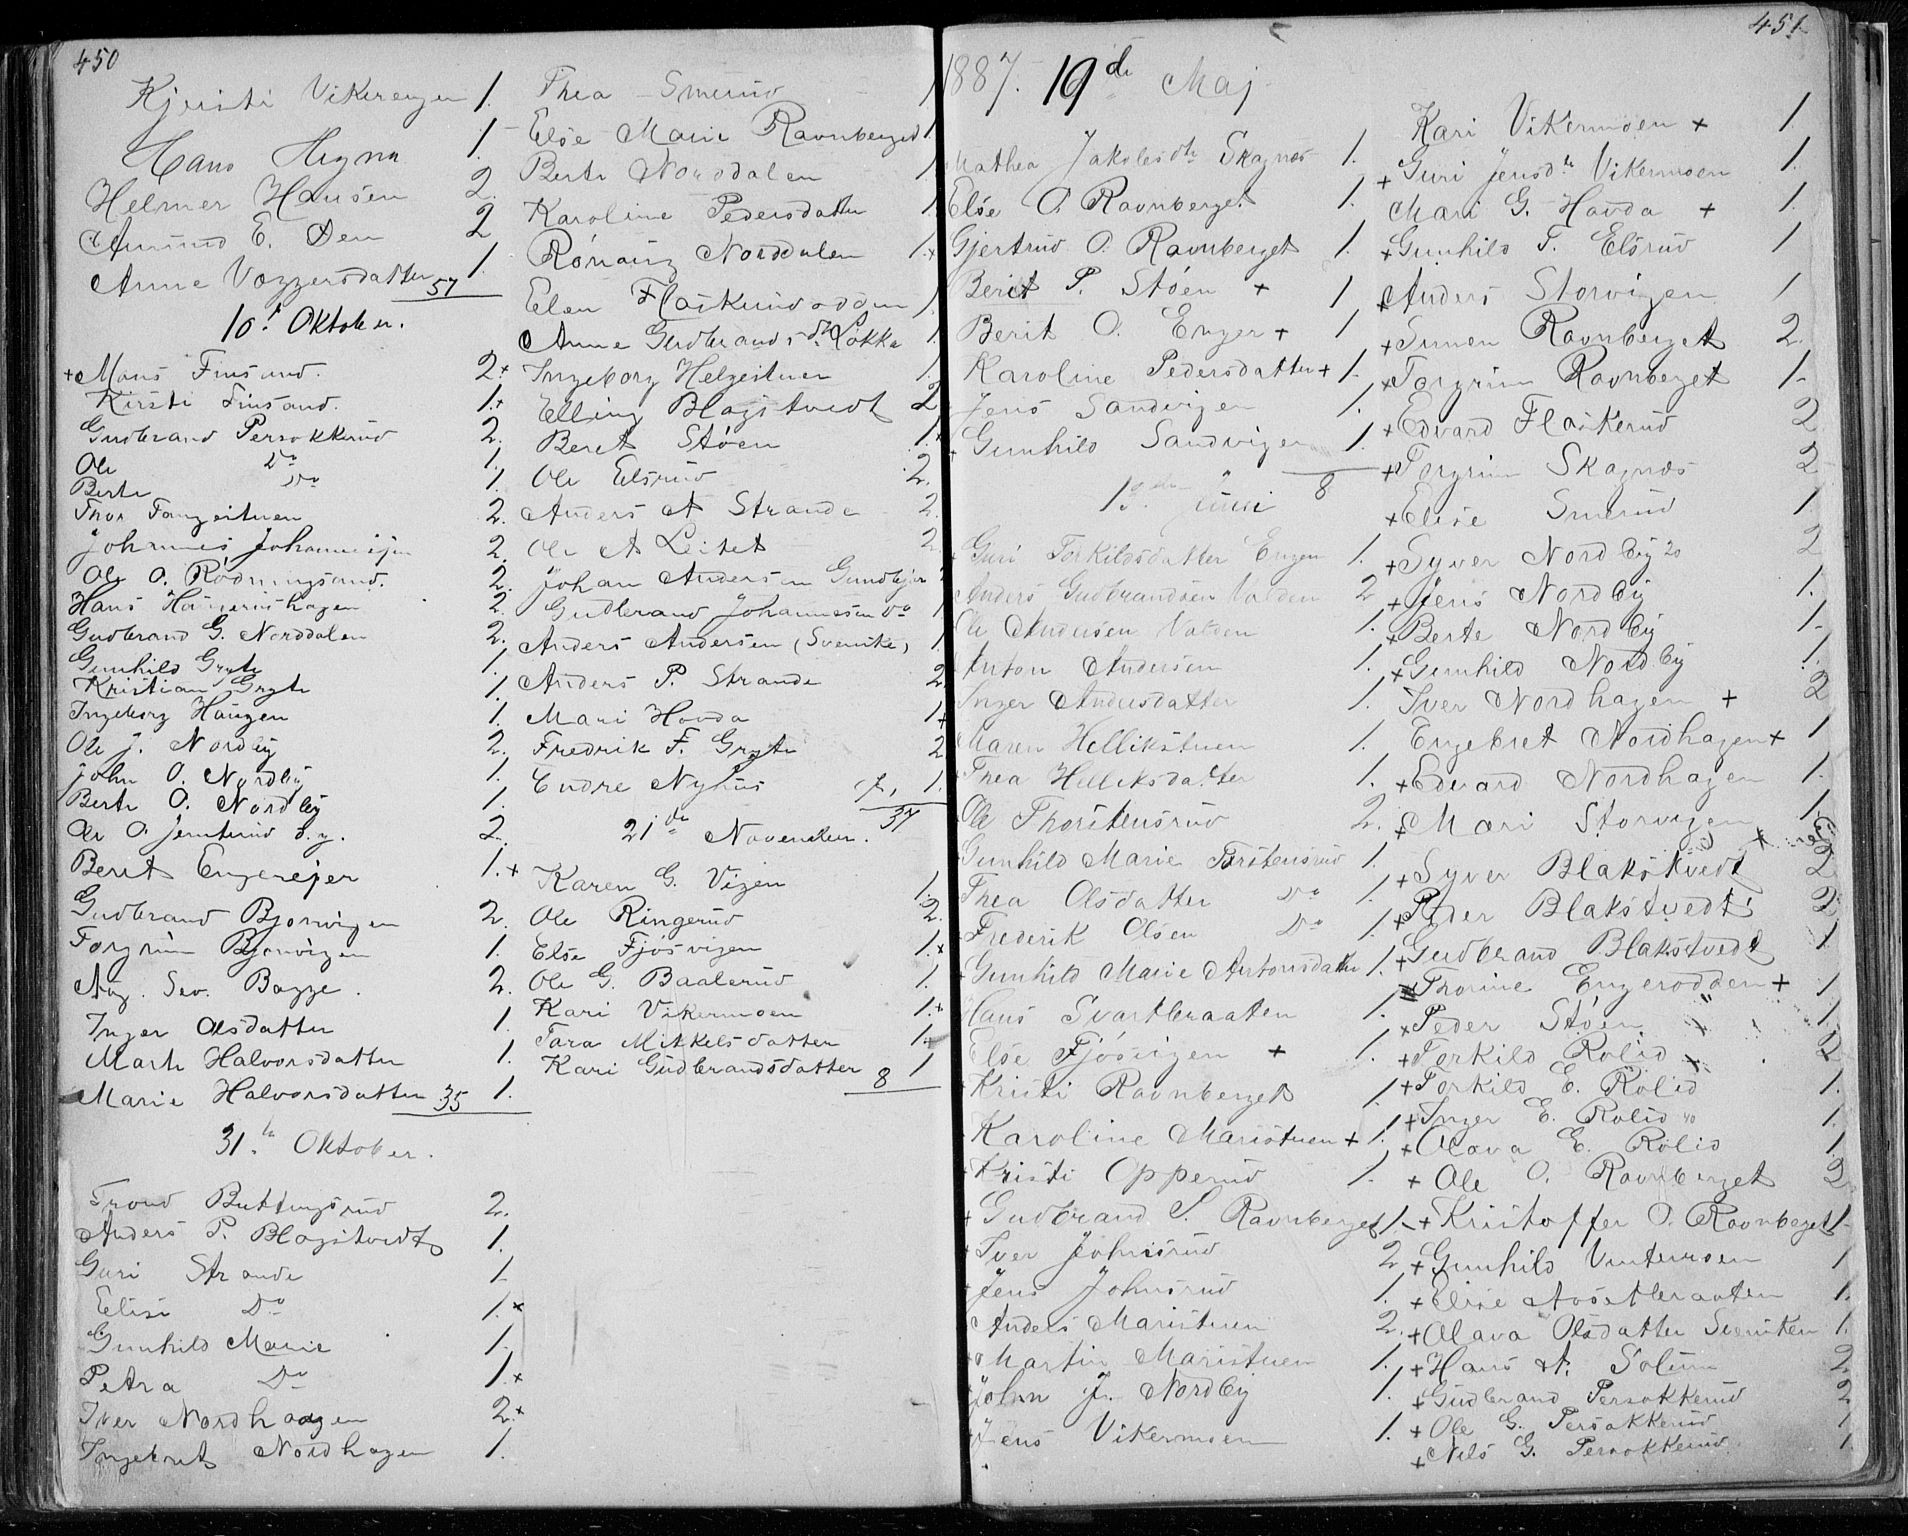 450
Kjersti Vikerengen 1.
Hans Hugna 1.
Helmer Hansen 2.
Amund E. Øen 2
Anne Voggersdatter 1.
57
10de Oktober.
+ Mons Finsand. 2+
Kirsti Finsand. 1+
Gudbrand Persokkerud 2.
Ole Do 1.
Berte Do 1
Thor Fangestuen 2.
Johannes Johannesen 2.
Ole O. Rødningsand. 2.
Hans Hamershagen 2.
Gudbrand G. Norddalen 2.
Gunhild Gryte 1.
Kristian Gryte 1.
Ingeborg Haugen 1.
Ole J. Nordby 2.
John O. Nordby 1.
Berte O. Nordby 1.
Ole O. Jemterud d. y. 2.
Berit Engerejer 1.+
Gudbrand Bjonvigen 2.
Torgrim Bjonvigen 1.
Aug. Sev. Bagge. 2.
Inger Olsdatter 1.
Marte Halvorsdatter 1.
Marie Halvorsdatter 35 1.
31te Oktober.
Trond Buttingsrud 2.
Anders P. Blagstvedt 1.
Guri Strande 1
Elise Do 1.+
Gunhild Marie 1.
Petra Do 1.+
Iver Nordhagen 2+
Ingebret Nordhagen 1.
Thea Smerud 1
Else Marie Ravnberget 1
Berte Norddalen 1
Karoline Pedersdatter 1.
Rønaug Norddalen 1.+
Elen Flaskerudodden 1.
Anne Gudbrandsdtr Løkka 1.
Ingeborg Helgestuen 1.
Elling Blagstvedt 2
Beret Støen 1.+
Ole Elsrud 2.
Anders A Strande 2.
Ole A Leitet 2.
Johan Andersen Gundbjør
Gudbrand Johannesen Do 1
Anders Andersen (Svenske) 1
Anders P. Strande 2
Mari Hovda 1+
Fredrik F. Gryte 2
Endre Nyhus 1.
37
21de November.
Karen G. Vigen 1.
Ole Ringerud 2.
Else Fjøsvigen 1.+
Ole G. Baalerud 1.
Kari Vikermoen 1.+
Tara Mikkelsdatter 1+
Kari Gudbrandsdatter 8 1
451
1887. 19de Maj
Mathea Jakobsdtr Skagnæs 1.
Else O. Ravnberget 1.
Gjertrud O. Ravnberget 1.
Berit P. Støen + 1
Berit O. Enger + 1
Karoline Pedersdatter + 1-
Jens Sandvigen 1.
Gunhild Sandvigen 1.
8
13de Juni
Guri Torkildsdatter Engen 1.
Anders Gudbrandsen Valden 2
Ole Andersen Valden 1.
Anton Andersen 1.
Inger Andersdatter 1.
Maren Hellikstuen 1.
Thea Helliksdatter 1.
Ole Thorstensrud 2.
Gunhild Marie Torstensrud 1.
Thea Olsdatter Do 1.
Frederik Olsen Do 1.
Gunhild Marie Antonsdatter 1.
Hans Svartbraaten 1.
Else Fjøsvigen + 1.
Kristi Ravnberget 1
Karoline Maristuen + 1.
Kristi Opperud 1.
Gudbrand S. Ravnberget 1-
Iver Johnsrud 2
Jens Johnsrud 1.
Anders Maristuen 2.
Martin Maristuen 1.
John J. Nordby 1.
Jens Vikermoen 1.
Kari Vikermoen + 1.
+ Guri Jensdtr Vikermoen 1.
Mari G. Hovda + 1.
+ Gunhild T. Elsrud 1
+ Anders Storvigen 1
+ Simen Ravnberget 2.
+ Torgrim Ravnberget 1-
+ Edvard Flaskerud 2
+ Torgrim Skagnæs 2
+ Elise Smerud 1
+ Syver Nordby 20 2
+ Jens Nordby 1.
+ Berte Nordby 1-
+ Gunhild Nordby 1.
Iver Nordhagen + 2
Engebret Nordhagen + 1
+ Edvard Nordhagen 1.
+ Mari Storvigen 1.
+ Syver Blakstvedt 2
+ Peder Blakstvedt 2
+ Gudbrand Blakstvedt 1
+ Thorine Engerodden + 1
+ Peder Støen 1.
+ Torkild Rolid 2
+ Torkild E. Rolid 1.
+ Inger E. Rolid 40 1.
+ Olava E. Rolid 1
+ Ole O. Ravnberget 2
+ Kristoffer O. Ravnberget 1-
+ Gunhild Vintermoen 1
+ Elise Aasetbraaten 1.
+ Olava Olsdatter Svensken 1.
+ Hans A. Solum 2
+ Gudbrand Persokkerud 2
+ Ole G. Persokkerud 1
+ Nils G. Persokkerud. 1.